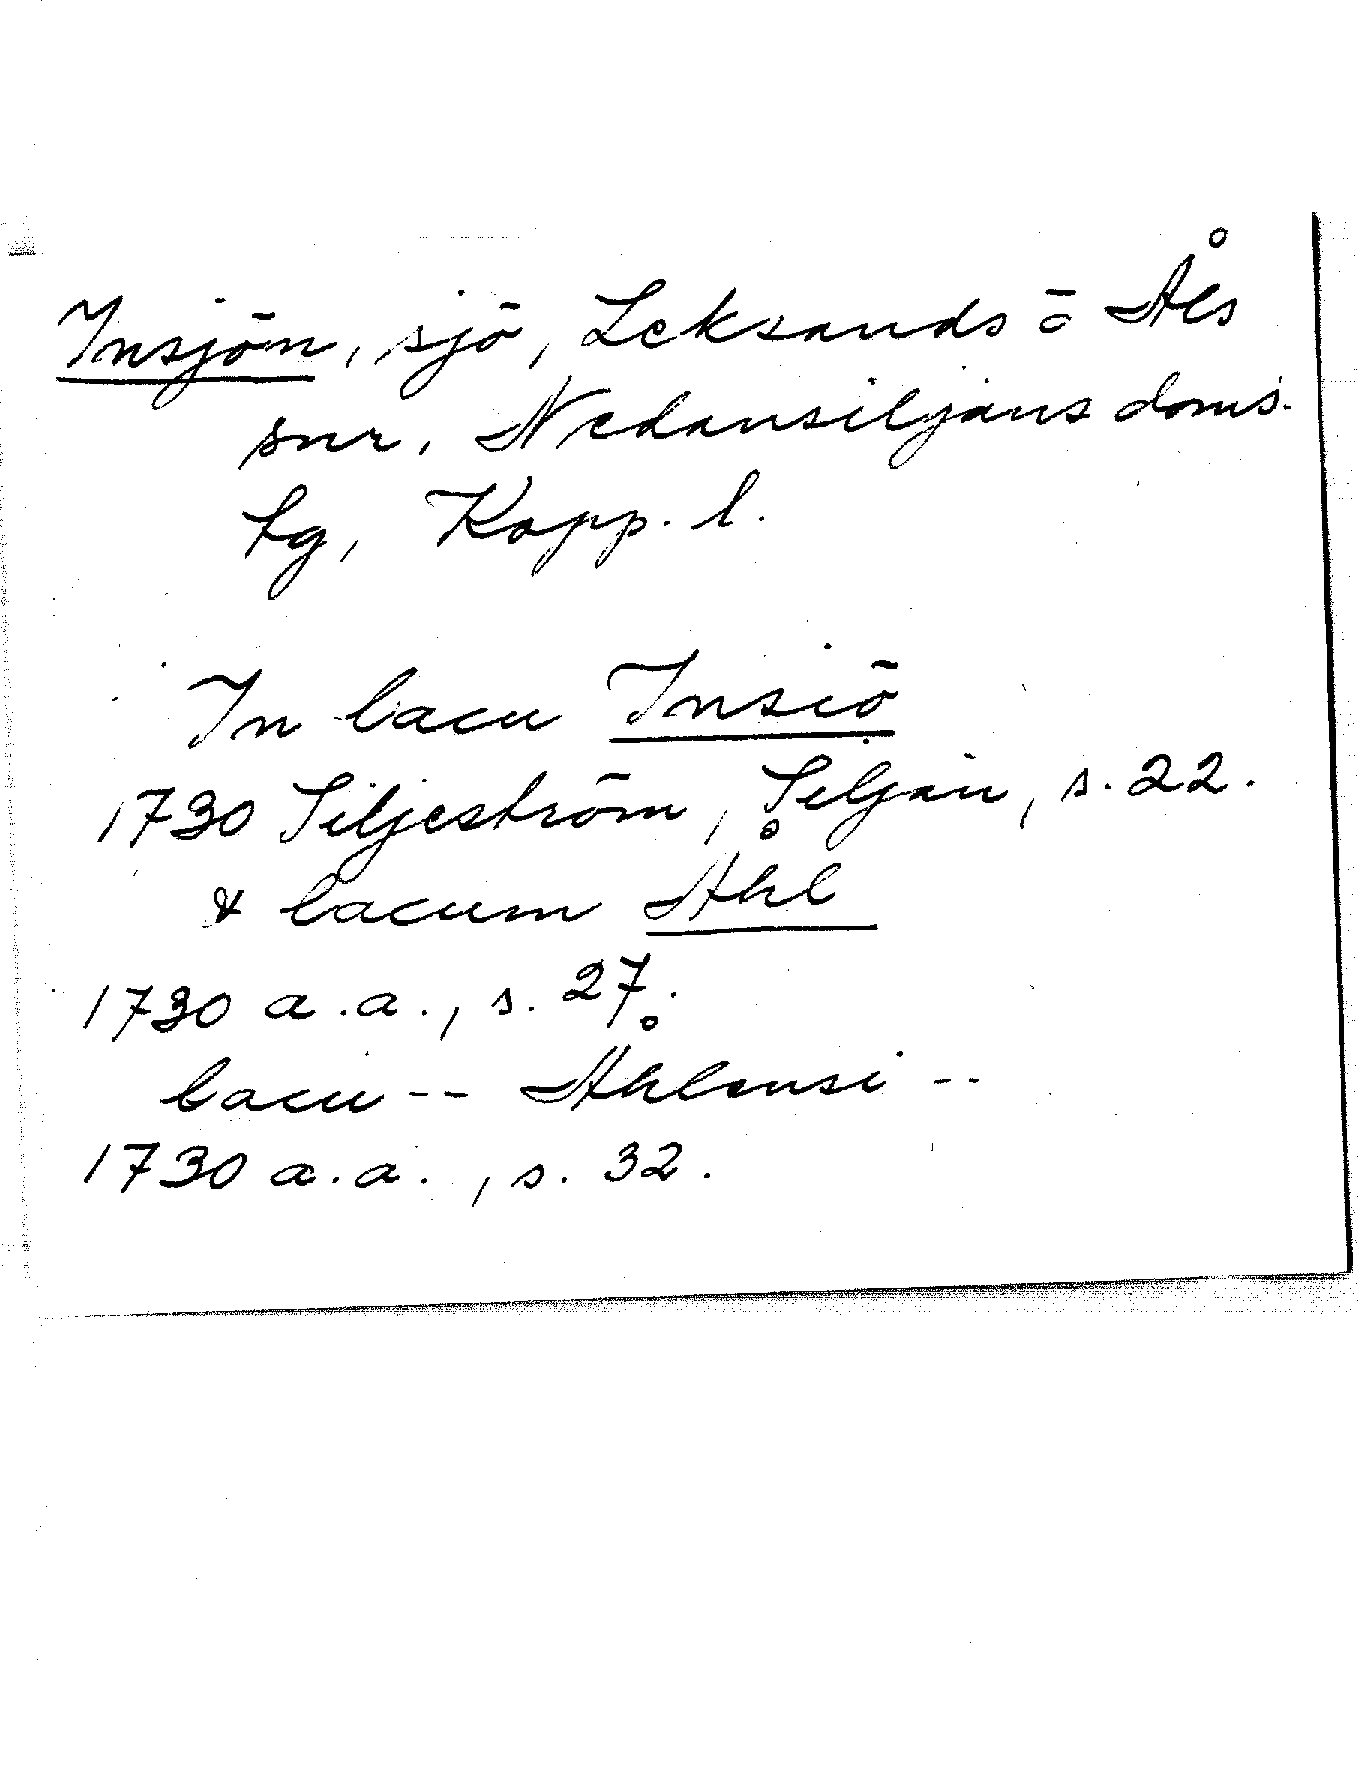 Insjön, sjö, Leksands o Åls
snr, Nedansiljans doms.
tg, Kopp. l.
In lacu Insiö
1730 Siljeström, Siljan, s. 22.
& lacum Åhl
1730 a.a., s. 27.
lacu -- Åhlensi --
1730 a.a., s. 32.